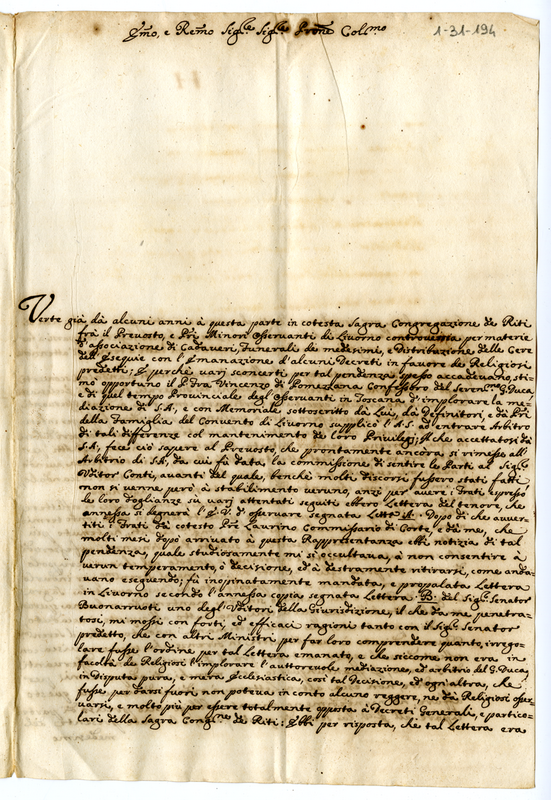 Ill.mo, e Re.mo Sig.re Sig.re Prone Col.mo
1-31-194
Verte già dà alcuni anni à questa parte in cotesta Sagra Congregazione de Riti
frà il Prevosto, e Pri Minori Osservanti di Livorno controversia per materie
d'asociazione di Cadaveri, Funerali de medesimi, e distribuzione delle Cere
dell'Esequie con l'Emanazione d'alcuni Decreti in favore de Religiosi
predetti; E perche varj sconcerti per tal pendenza spesso accadevano, sti-
mò opportuno il P.dra Vincenzo di Confessoro del Seren.mo G. Duca,
e di quel tempo Provinciale degl'Osservanti in Toscana d'implorare la me-
diazione di S.A., e con Memoriale sottoscritto dà Lui, dà Definitori, e dà Pri
della Famiglia del Convento di Livorno supplicò l'A.S. ad entrare Arbitro
di tali differenze col mantenimento de loro Privilegj; Il che accettatosi dà
S.A., feces ciò sapere al Prevosto, che prontamente ancora si rimesse all'
Arbitrio di S.A., da cui fù data la commissione di sentire le Parti al Sig.re
Vditor Conti, avanti del quale, benche molti discorsi fussero stati fatti,
non si venne però à stabilimento veruno, anzi per avere i Frati espresso
le loro doglianze sù varj attentati seguiti ebbero Lettera del tenore, che
annessa si degnerà l'E.V. d'osservare segnata Letta A: Dopo di che avver-
titi i Frati dà cotesto Pre Laurino Commissario di Corte, e dà me, che
molti mesi dopò arrivato à questa Rappresentanza ebbi notizia di tal
pendenza, quale studiosamente mi si occultava, à non consentire à
verun temperamento, ò decisione, ed à destramente ritirarsi, come anda-
vano eseguendo; fù inopinatamente mandata, e propalata Lettera
in Livorno secondo l'annessa copia segnata Lettera B. del Sig.r Senator
Buonarruoti uno degl'Vditori della Giuridizione, il che dà me penetra-
tosi, mi mossi con forti, ed efficaci ragioni tanto con il Sig.r Senator
predetto, che con altri Ministri per far loro comprendere quanto irrego-
lare fusse l'ordine per tal Lettera emanato, e che siccome non era in
facoltà de Religiosi l'implorare l'autorevole mediazione, ed arbitrio del G. Duca,
in disputa pura, e mera Eclesiastica, così tal decisione, ed ogni altra, che
fusse per darsi fuori non poteva in conto alcuno reggere, ne dà Religiosi osser-
varsi, e molto più per essere totalmente opposta à Decreti Generali, e partico-
lari della Sagra Cong.ne de Riti: Ebbi per risposta, che tal Lettera era